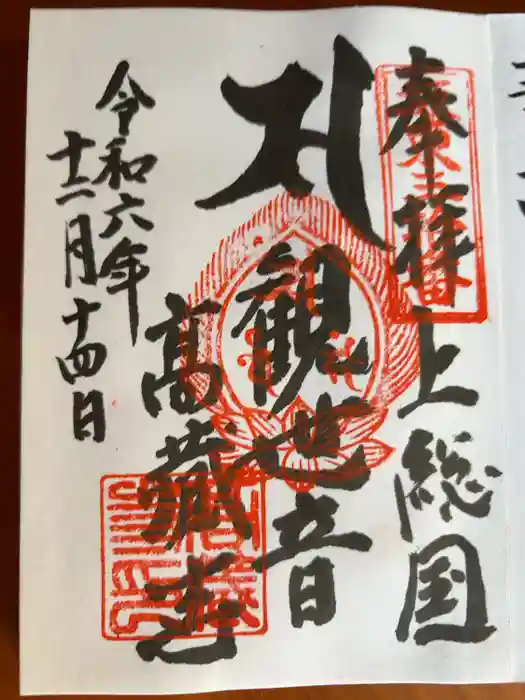 奉拝 上総国
観世音
高蔵寺
令和六年
十二月十四日